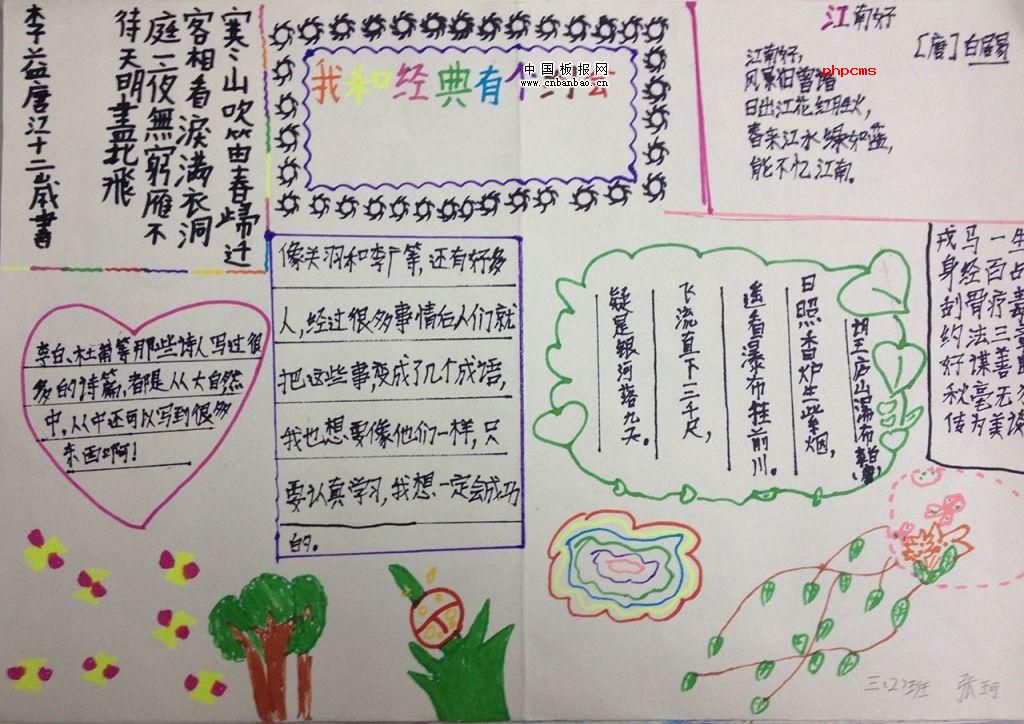 寒山吹笛春歸迁
客相看淚滿衣洞
庭一夜無窮雁不
待天明盡北飛
李益唐江十二歲書
我和经典有个约会
中国板报网
www.cnbanbao.cn
江南好
[唐]白居易
江南好，
风景旧曾谙
phpcms
日出江花红胜火，
春来江水绿如蓝，
能不忆江南。
像关羽和李广等，还有好多
人，经过很多事情后人们就
把这些事，变成了几个成语，
我也想要像他们一样，只
要认真学习，我想一定会成功
的。
李白、杜甫等那些诗人写过很
多的诗篇，都是从大自然
中，从中还可以写到很多
东西啊！
望庐山瀑布
日照香炉生紫烟，
遥看瀑布挂前川。
飞流直下三千尺，
疑是银河落九天。
戎马一生
身经百占
刮骨疗毒
约法三章
好谋善
秋毫无
传为美谈
三(2)班 张珂